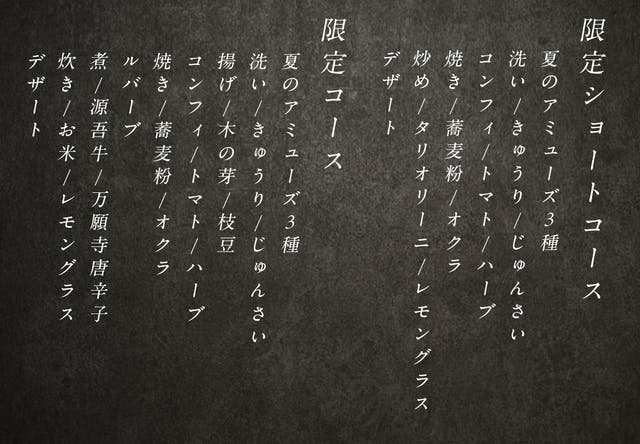 限定ショートコース
夏のアミューズ3種
洗い/きゅうり/じゅんさい
コンフィ/トマト/ハーブ
焼き/蕎麦粉/オクラ
炒め/タリオリーニ/レモングラス
デザート
限定コース
夏のアミューズ3種
洗い/きゅうり/じゅんさい
揚げ/木の芽/枝豆
コンフィ/トマト/ハーブ
焼き/蕎麦粉/オクラ
ルバーブ
煮/源吾牛/万願寺唐辛子
炊き/お米/レモングラス
デザート